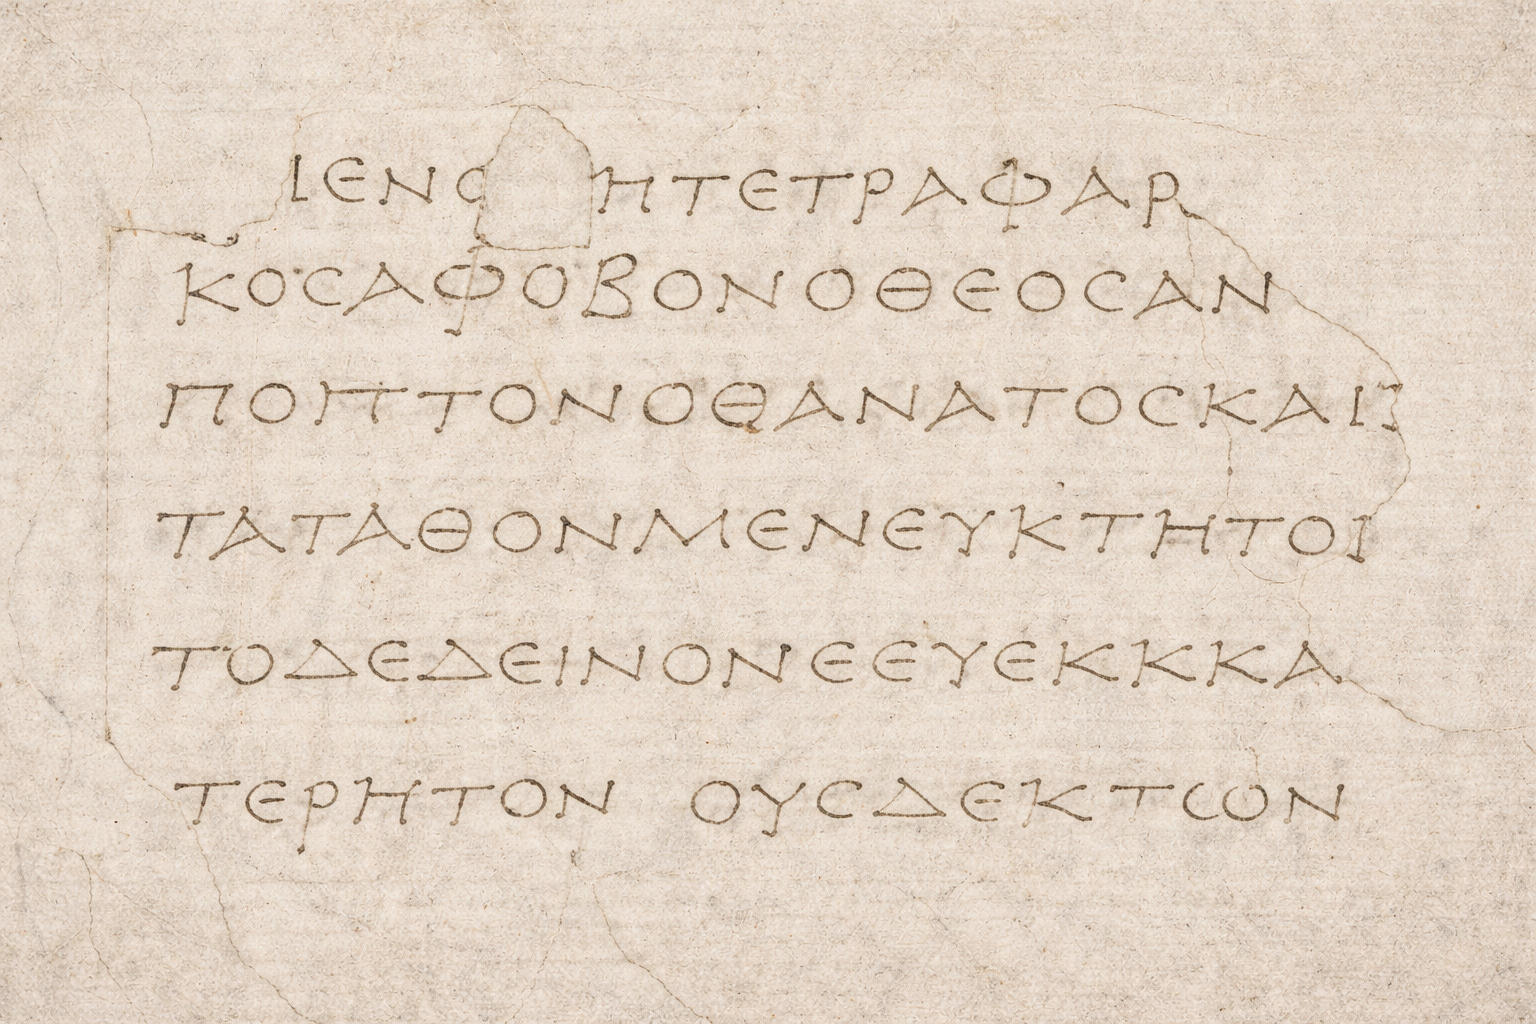 ΙΕΝΟ ΗΤΕΤΡΑΦΑΡ
ΚΟCΑΦΟΒΟΝΟΘΕΟCΑΝ
ΠΟΗΤΟΝΟΘΑΝΑΤΟCΚΑΙ
ΤΑΤΑΘΟΝΜΕΝΕΥΚΤΗΤΟΙ
ΤΟΔΕΔΕΙΝΟΝΕΕΥΕΚΚΚΑ
ΤΕΡΗΤΟΝ ΟΥCΔΕΚΤωΝ